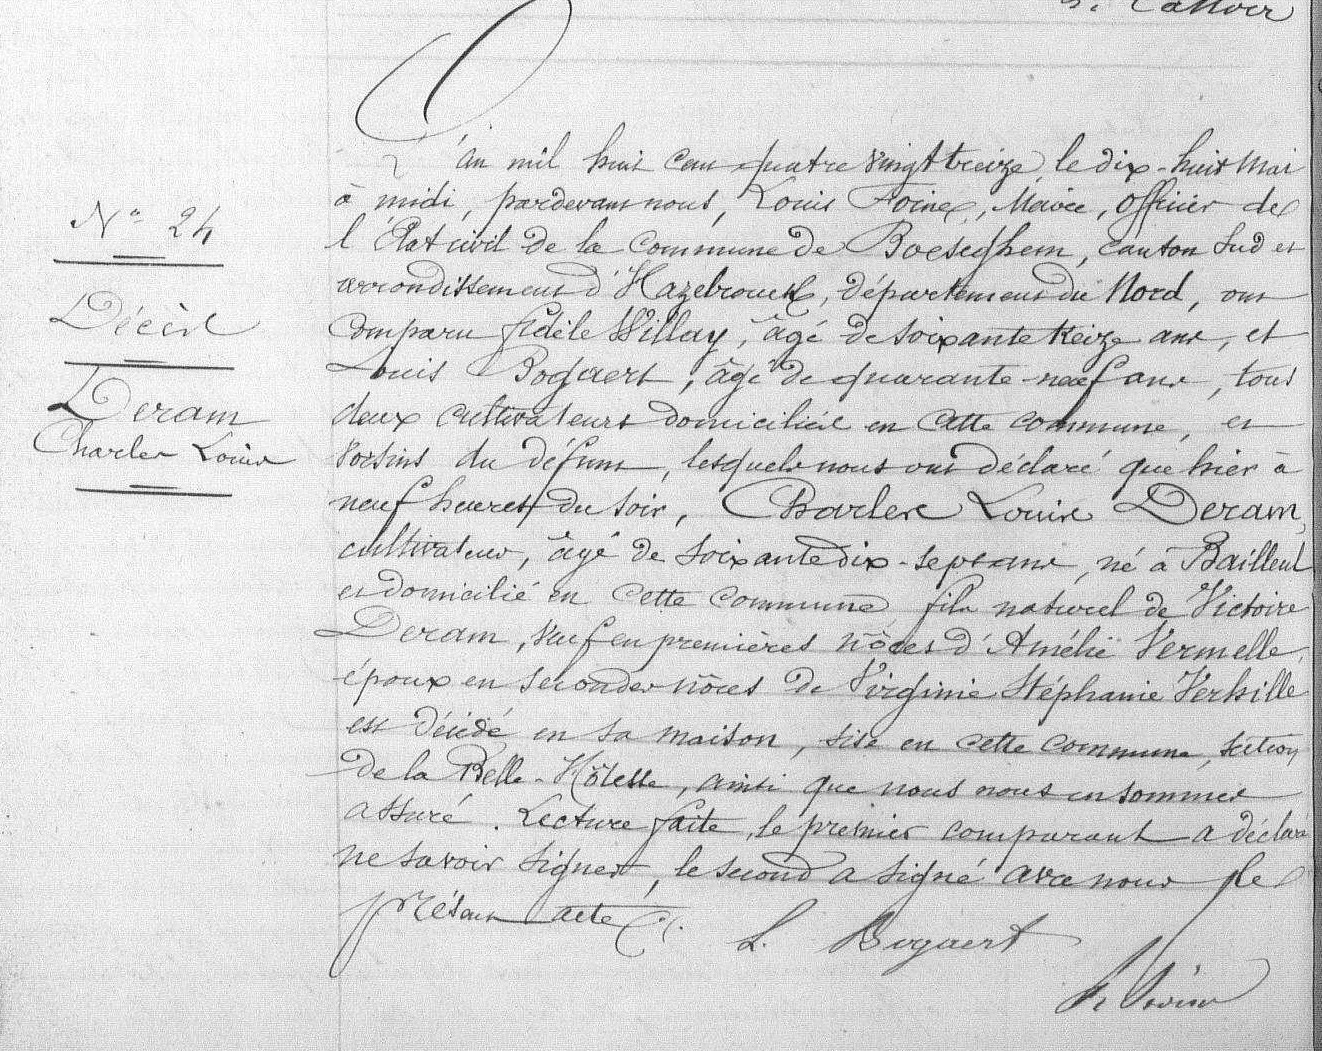 L'an mil huit cent quatre vingt treize, le dix-huit Mai
à midi, pardevant nous, Louis Foine, Maire, officier de
l'Etat civil de la commune de Boeseghem, canton Sud et
arrondissement d'Hazebrouck, département du Nord, ont
N° 24
comparu fidèle Willay, âgé de soixante treize ans, et
Décès
Louis Bogaert, âgé de quarante-neuf ans, tous
Deram
deux cultivateurs domiciliés en cette commune, et
Charles Louis
voisins du défunt, lesquels nous ont déclaré que hier à
neuf heures du soir, Charles Louis Deram,
cultivateur, âgé de soixante dix-sept ans, né à Bailleul
et domicilié en cette commune fils naturel de Victoire
Deram, veuf en premières nôces d'Amélie Vermelle,
époux en secondes nôces de Virginie Stéphanie Verhille
est décédé en sa maison, sise en cette commune, section
de la Belle-Hôtesse, ainsi que nous nous en sommes
assuré. Lecture faite, le premier comparant a déclaré
ne savoir signer, le second a signé avec nous le
présent acte
L. Bogaert